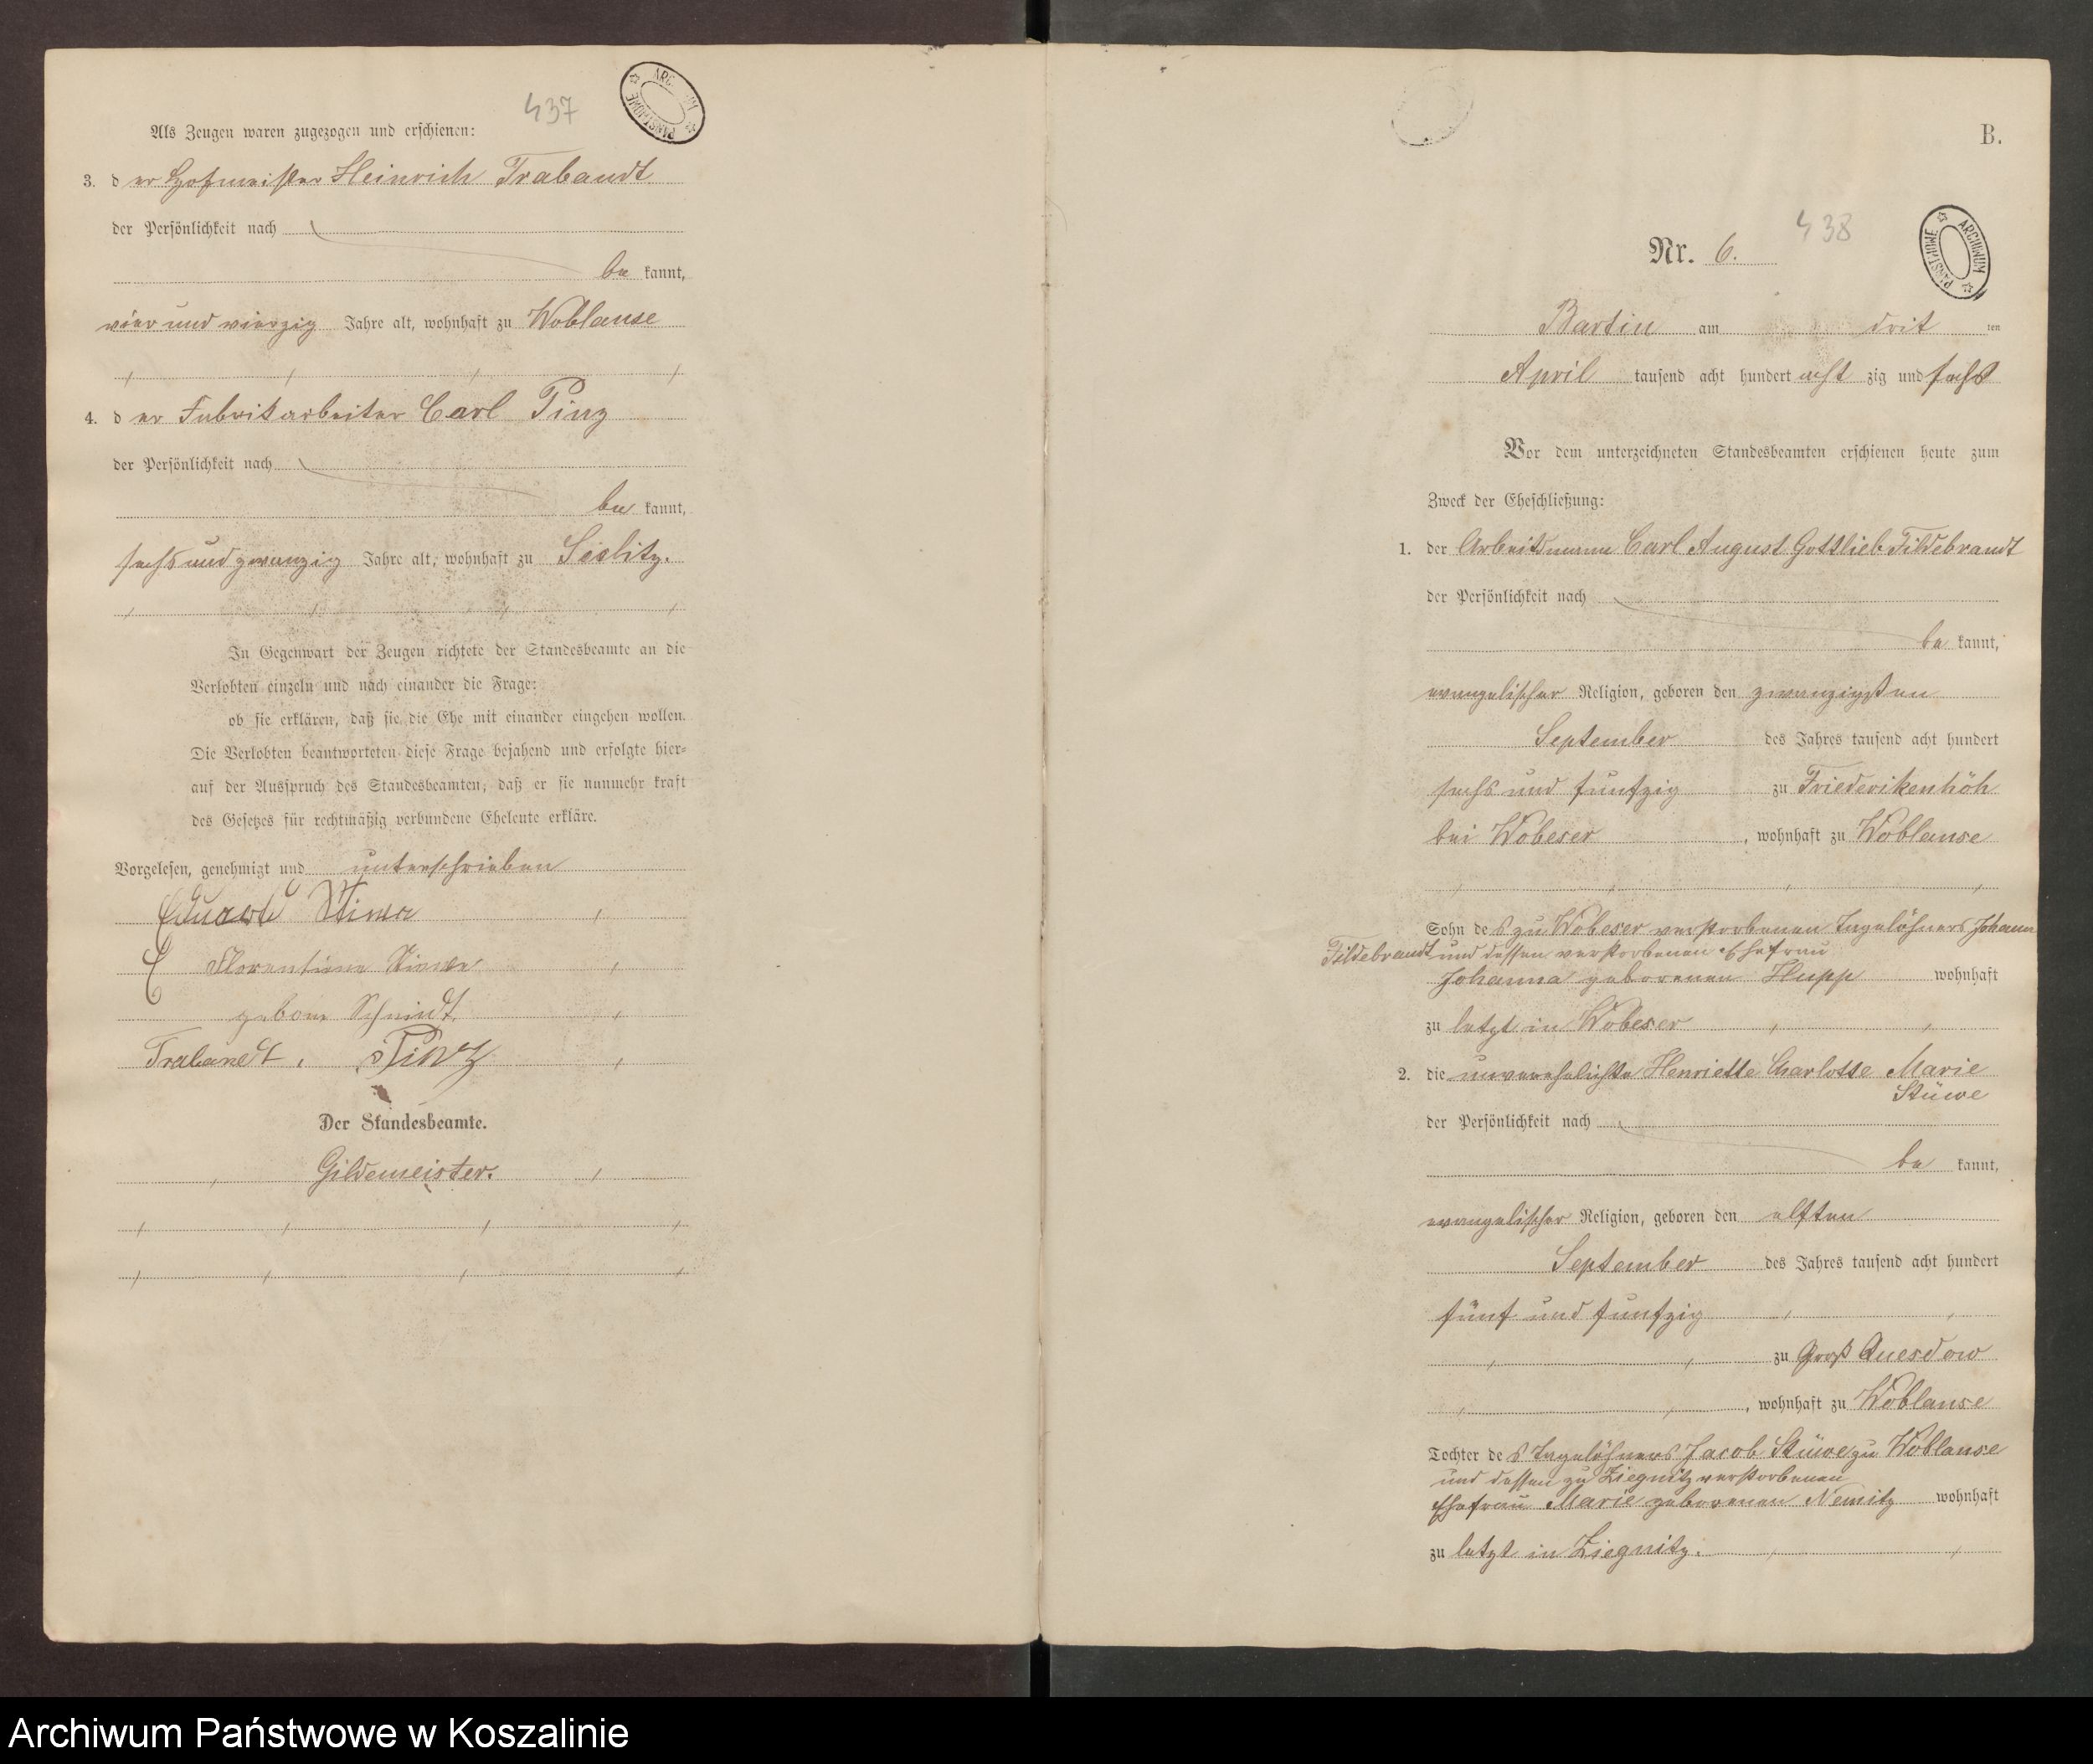 437
ARCHIWUM PAŃSTWOWE
Als Zeugen waren zugezogen und erschienen:
3. der Hofmeister Heinrich Trabandt
der Persönlichkeit nach
be kannt,
vier und vierzig Jahre alt, wohnhaft zu Woblanse
4. der Fabrikarbeiter Carl Pinz
der Persönlichkeit nach
be kannt,
sechs und zwanzig Jahre alt, wohnhaft zu
In Gegenwart der Zeugen richtete der Standesbeamte an die
Verlobten einzeln und nach einander die Frage:
ob sie erklären, daß sie die Ehe mit einander eingehen wollen.
Die Verlobten beantworteten diese Frage bejahend und erfolgte hier-
auf der Ausspruch des Standesbeamten, daß er sie nunmehr kraft
des Gesetzes für rechtmäßig verbundene Eheleute erkläre.
Vorgelesen, genehmigt und unterschrieben
Eduard
Florentine
geborne Schmidt
Trabandt. Pinz
Der Standesbeamte.
Gildemeister.
B.
438
Nr. 6.
ARCHIWUM PAŃSTWOWE
Bartin am drit ten
April tausend acht hundert acht zig und sechs
Vor dem unterzeichneten Standesbeamten erschienen heute zum
Zweck der Eheschließung:
1. der Arbeitsmann Carl August Gottlieb Fildebrandt
der Persönlichkeit nach
be kannt,
evangelischer Religion, geboren den zwanzigsten
September des Jahres tausend acht hundert
sechs und funfzig zu Friederikenhöh
bei Wobeser, wohnhaft zu Woblanse
Sohn des zu Wobeser verstorbenen Tagelöhners Johann
Fildebrandt und dessen verstorbenen Ehefrau
Johanna geborenen Hupp wohnhaft
zu letzt in Wobeser
2. die unverehelichte Henriette Charlotte Marie
Stüwe
der Persönlichkeit nach
be kannt,
evangelischer Religion, geboren den elften
September des Jahres tausend acht hundert
fünf und funfzig
zu Groß Quesdow
, wohnhaft zu Woblanse
Tochter des Tagelöhners Jacob Stüwe zu Woblanse
und dessen zu Ziegnitz verstorbenen
Ehefrau Marie geborenen Nemitz wohnhaft
zu letzt in Ziegnitz.
Archiwum Państwowe w Koszalinie